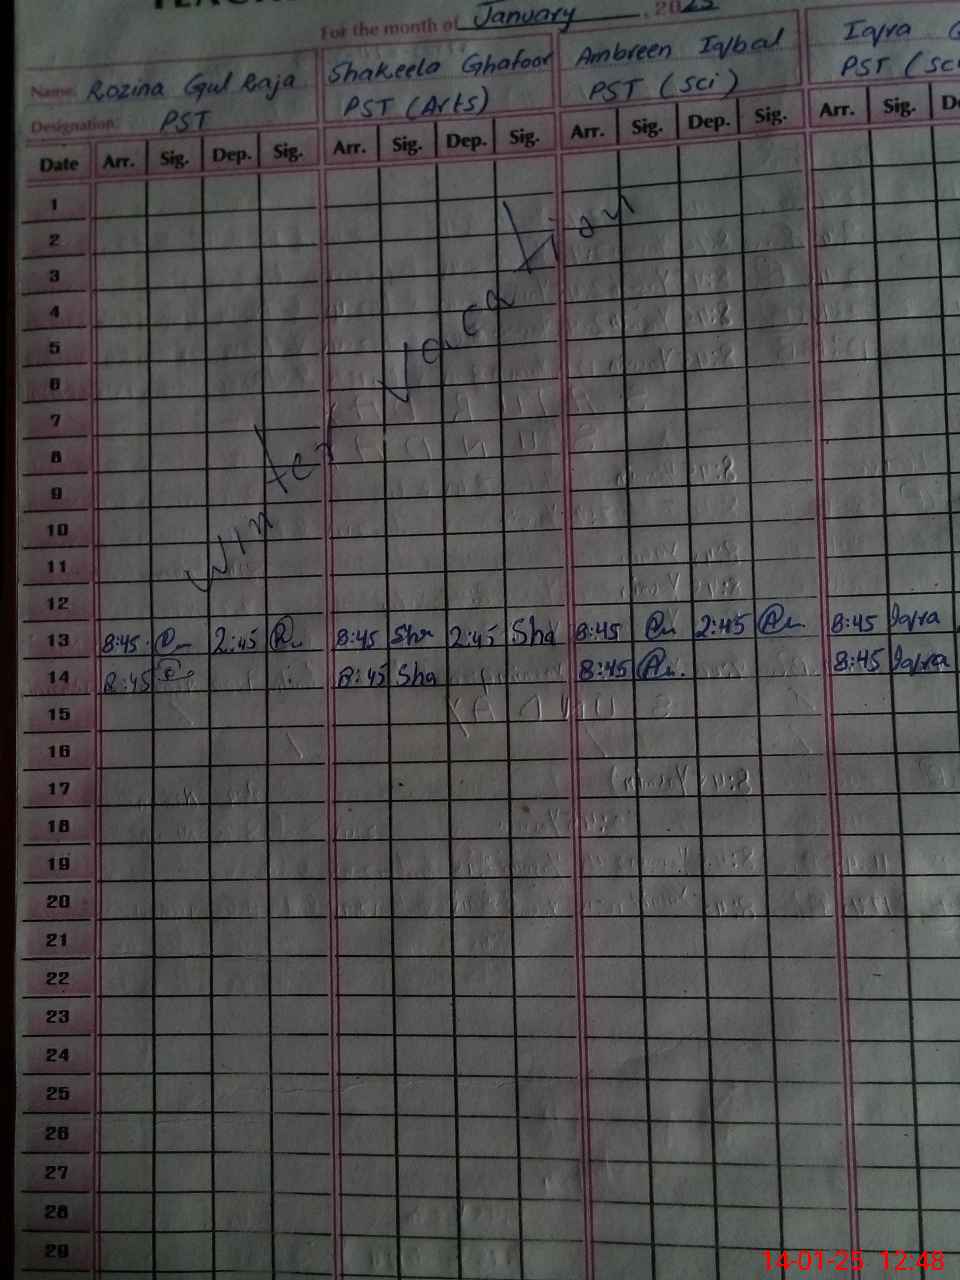 For the month of January, 2025
Name: Rozina Gul Raja Shakeela Ghafoor Ambreen Iqbal Iqra
Designation: PST PST (Arts) PST (Sci) PST (Sci
Date Arr. Sig. Dep. Sig. Arr. Sig. Dep. Sig. Arr. Sig. Dep. Sig. Arr. Sig.
1
2
3
4
5
6
7
8
9
10
11
12
Winter Vacation
13 8:45 2:45 8:45 Sha 2:45 Sha 8:45 2:45 8:45 Iqra
14 8:45 8:45 Sha 8:45 8:45 Iqra
15
16
17
18
19
20
21
22
23
24
25
26
27
28
29
14-01-25 12:48